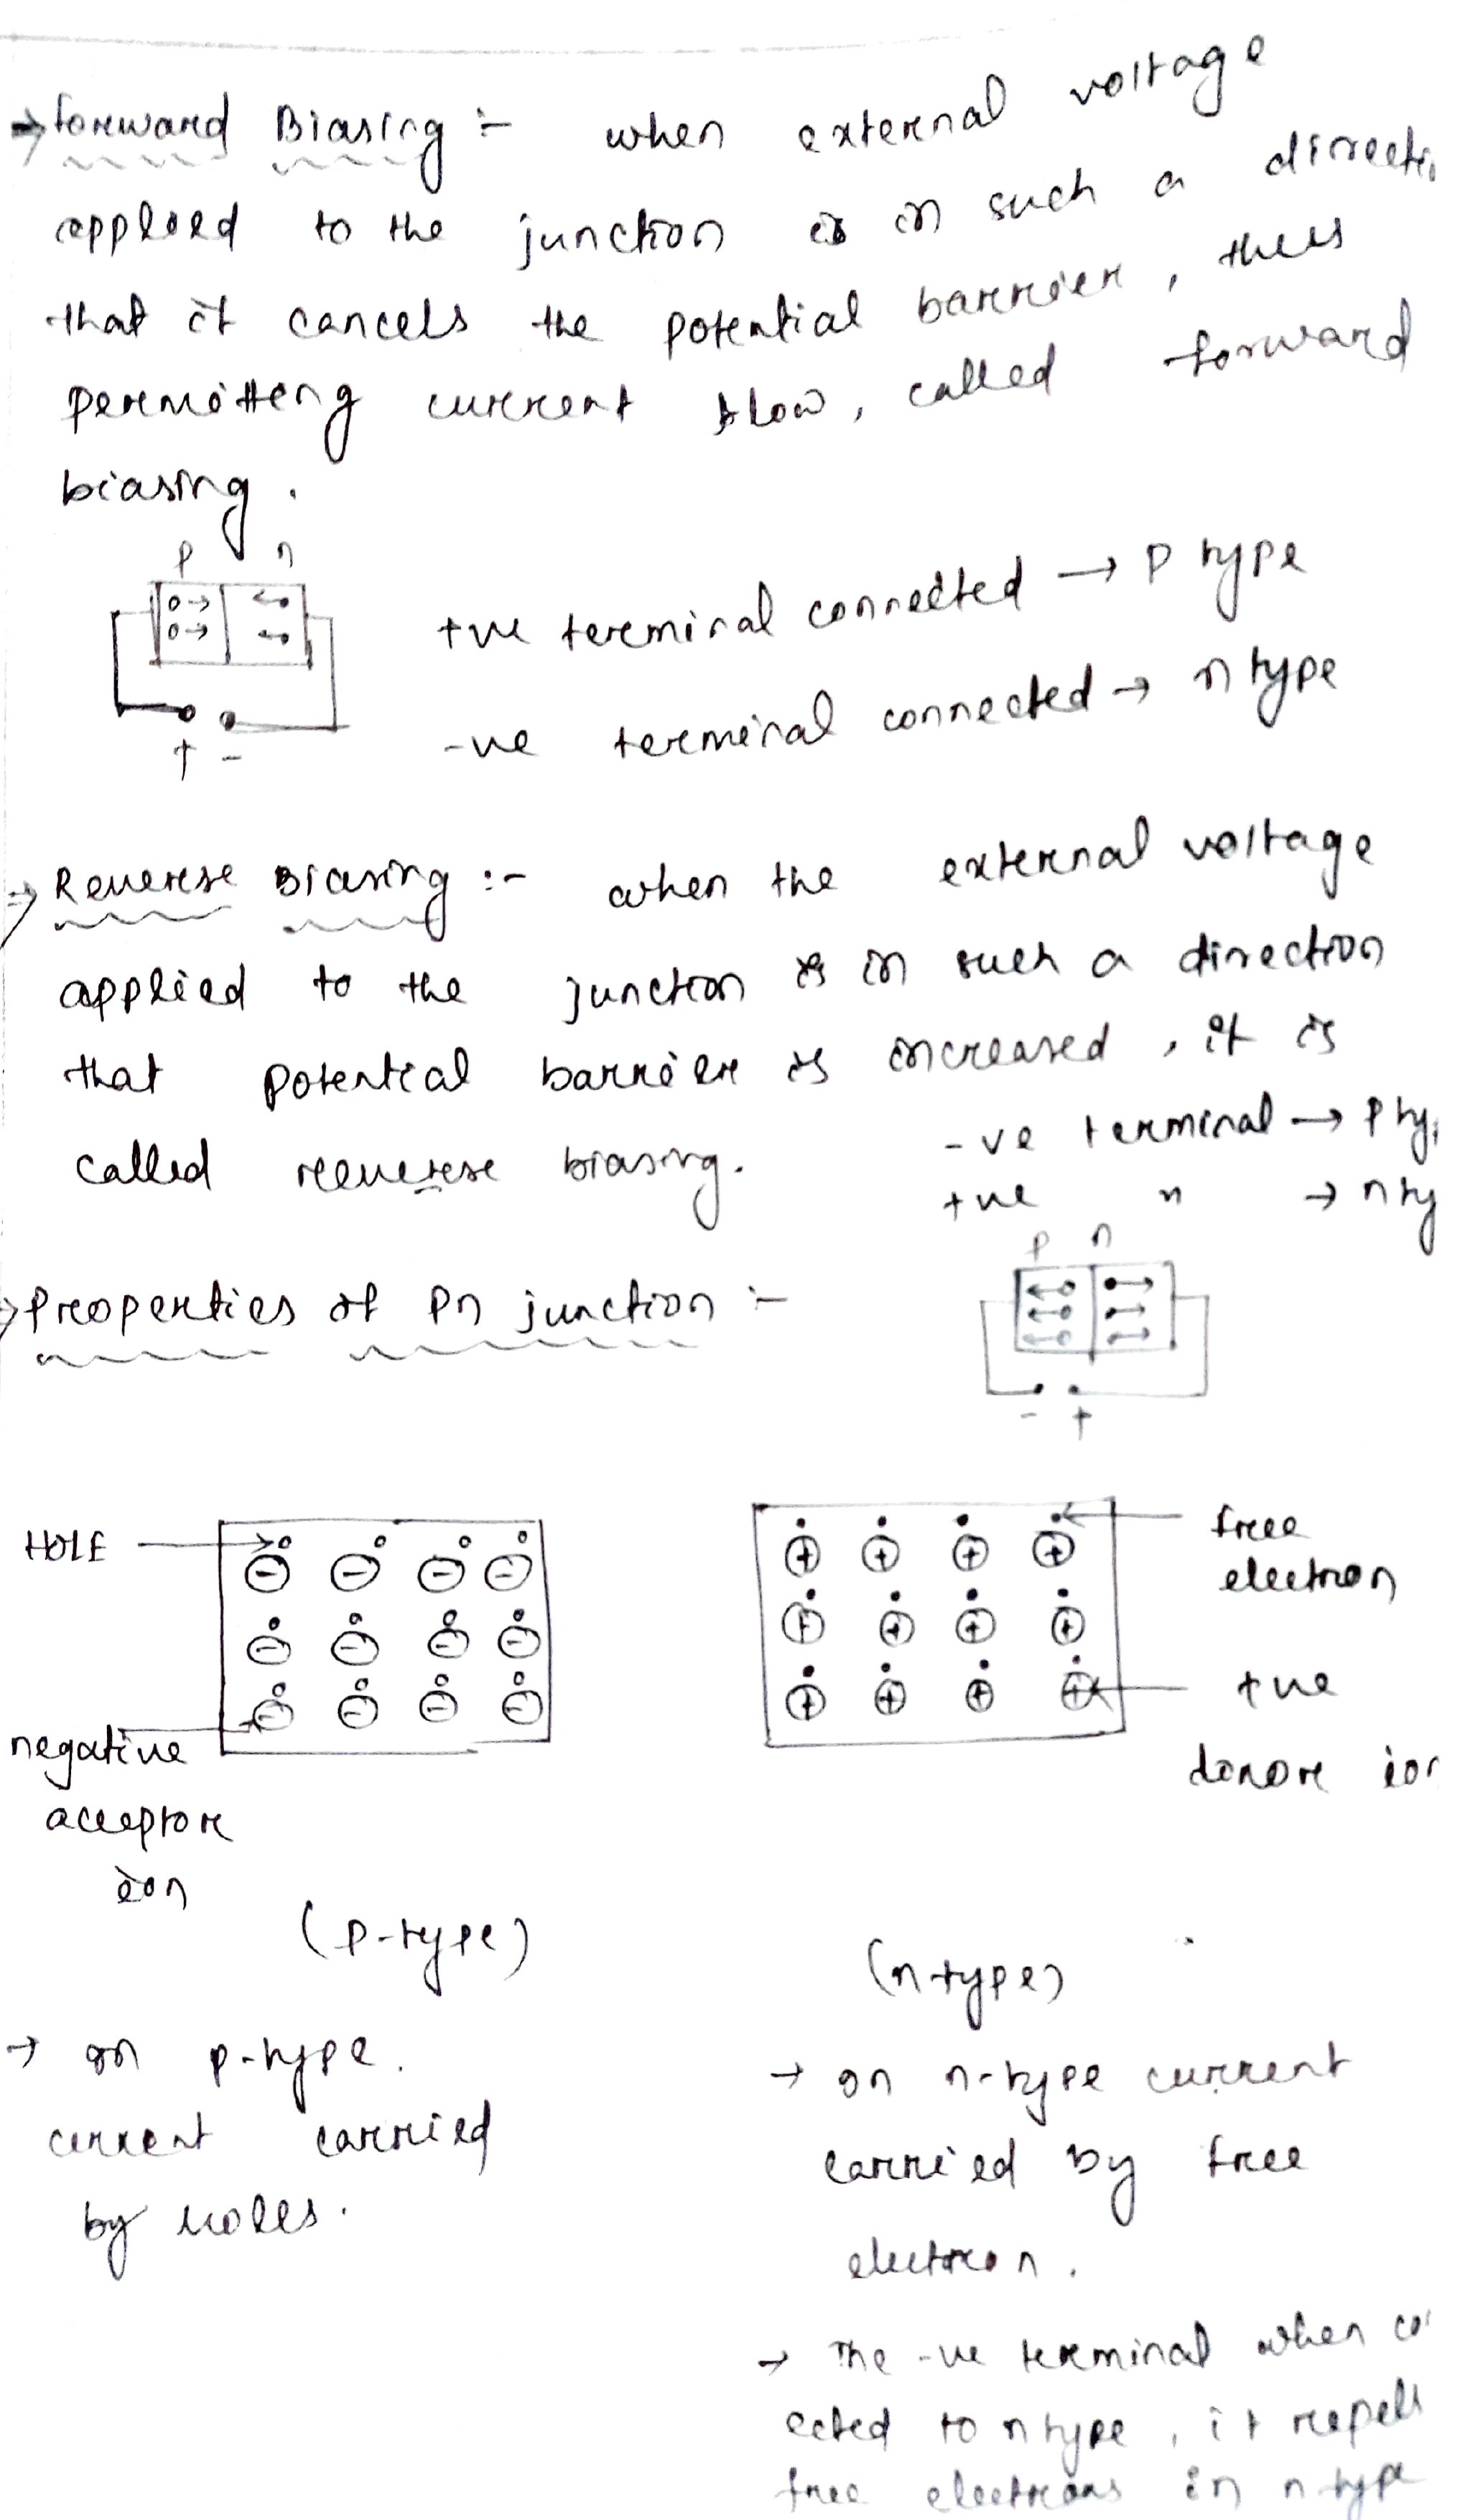 → Forward Biasing :- when external voltage
applied to the junction is in such a directi
that it cancels the potential barrier, thus
permitting current flow, called forward
biasing.
p n
+ve terminal connected → P type
-ve terminal connected → n type
+ -
→ Reverse Biasing :- when the external voltage
applied to the junction is in such a direction
that potential barrier is increased, it is
called reverse biasing.
-ve terminal → P ty
+ve " → n ty
p n
- +
→ Properties of Pn junction :-
HOLE
free
electron
negative
acceptor
ion
+ve
donor ion
(p-type)
(n type)
→ In p-type.
current carried
by holes.
→ In n-type current
carried by free
electron.
→ The -ve terminal when co
ected to n type, it repels
free electrons in n type